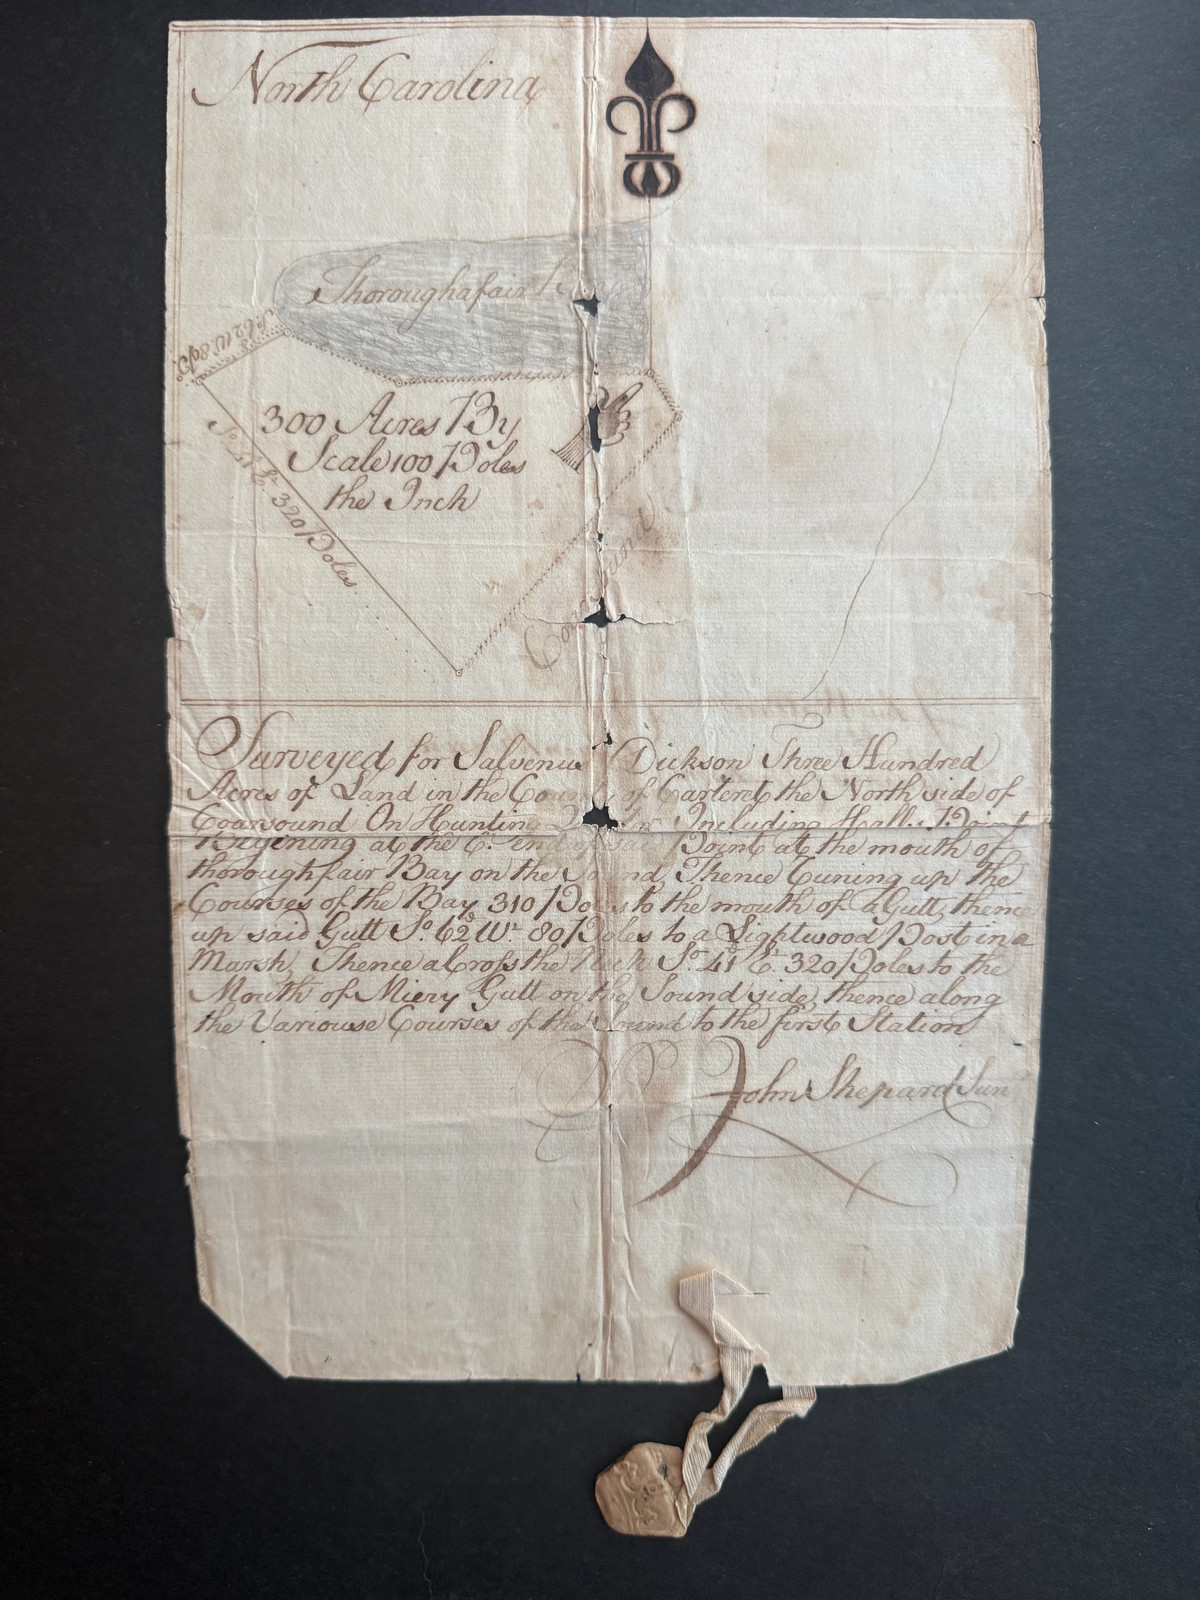 North Carolina
Thoroughafair
So. 62 W. 80 Po.
300 Acres By
Scale 100 Poles
the Inch
So. 41 E. 320 Poles
Surveyed for Salvenus Dickson Three Hundred
Acres of Land in the County of Carteret the North side of
Coarsound On Hunting Including Halls Point
Begining at the E. end of said Point at the mouth of
thoroughfair Bay on the Sound Thence Tuning up the
Courses of the Bay 310 Poles to the mouth of a Gutt, thence
up said Gutt So. 62d W. 80 Poles to a Lightwood Post in a
Marsh, Thence aCross the Neck So. 41d E. 320 Poles to the
Mouth of Miery Gutt on the Sound side, thence along
the Variouse Courses of the Sound to the first Station
John Shepard Sur